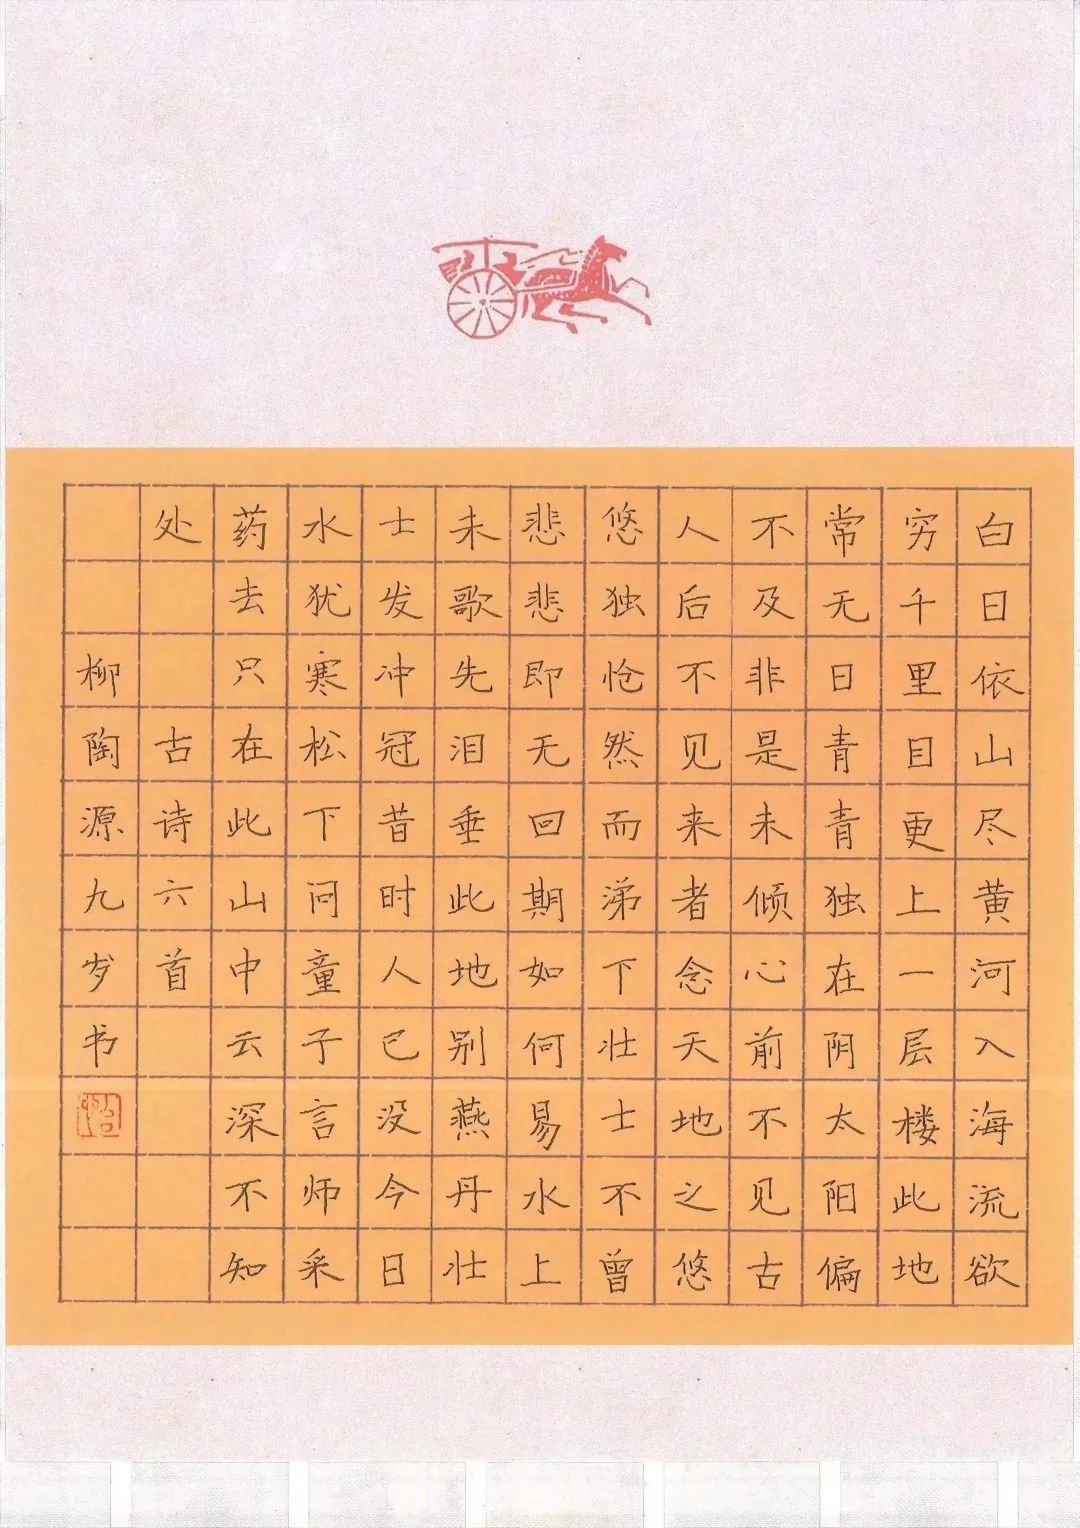 白日依山尽黄河入海流欲
穷千里目更上一层楼此地
常无日青青独在阴太阳偏
不及非是未倾心前不见古
人后不见来者念天地之悠
悠独怆然而涕下壮士不曾
悲悲即无回期如何易水上
未歌先泪垂此地别燕丹壮
士发冲冠昔时人已没今日
水犹寒松下问童子言师采
药去只在此山中云深不知
处 古诗六首
柳陶源九岁书